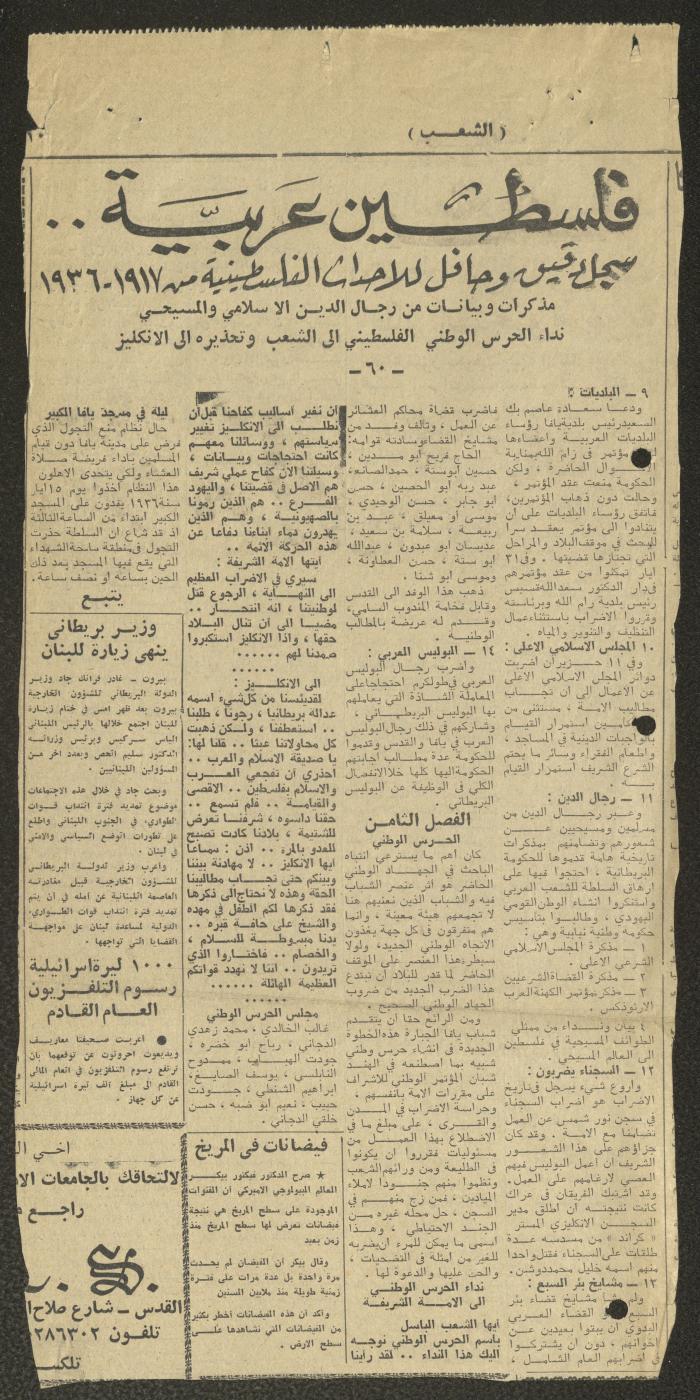 ( الشعب )
فلسطين عربية ..
سجل دقيق وحافل للاحداث الفلسطينية من ١٩١٧-١٩٣٦
مذكرات وبيانات من رجال الدين الاسلامي والمسيحي
نداء الحرس الوطني الفلسطيني الى الشعب وتحذيره الى الانكليز
- ٦٠ -
٩ - البلديات :
ودعا سعادة عاصم بك
السعيد رئيس بلدية يافا رؤساء
البلديات العربية واعضاءها
مؤتمر في رام الله
الحاضرة ، ولكن
الحكومة منعت عقد المؤتمر ،
وحالت دون ذهاب المؤتمرين،
فاتفق رؤساء البلديات على ان
يتنادوا الى مؤتمر يعقد سرا
للبحث في موقف البلاد والمراحل
التي تجتازها قضيتها . وفي ٣١
ايار تمكنوا من عقد مؤتمرهم
في دار الدكتور سعد الله قسيس
رئيس بلدية رام الله وبرئاسته
وقرروا الاضراب باستثناء عمال
التنظيف والتنوير والمياه .
١٠ المجلس الاسلامي الاعلى :
وفي ١١ حزيران اضربت
دوائر المجلس الاسلامي الاعلى
عن الاعمال الى ان تجاب
مطاليب الامة ، مستثنى من
استمرار القيام
بالواجبات الدينية في المساجد ،
واطعام الفقراء وسائر ما يحتم
الشرع الشريف استمرار القيام
بـه .
١١ - رجال الدين :
وعبر رجال الدين من
مسلمين ومسيحيين عن
شعورهم وتضامنهم بمذكرات
تاريخية هامة قدموها للحكومة
البريطانية ، احتجوا فيها على
ارهاق السلطة للشعب العربي
واستنكروا انشاء الوطن القومي
اليهودي ، وطالبوا بتأسيس
حكومة وطنية نيابية وهي :
١ - مذكرة المجلس الاسلامي
الشرعي الاعلى .
٢ - مذكرة القضاة الشرعيين
٣ - مذكرة مؤتمر الكهنة العرب
الارثوذكس .
٤ بيان ونداء من ممثلي
الطوائف المسيحية في فلسطين
الى العالم المسيحي .
١٢ - السجناء يضربون :
واروع شيء يسجل في تاريخ
الاضراب هو اضراب السجناء
في سجن نور شمس عن العمل
تضامنا مع الامة . وقد كان
جزاؤهم على هذا الشعور
الشريف ان اعمل البوليس فيهم
العصي لارغامهم على العمل.
وقد اشتبك الفريقان في عراك
كانت نتيجته ان اطلق مدير
السجن الانكليزي المستر
« كراند » من مسدسه عدة
طلقات على السجناء فقتل واحدا
منهم اسمه خليل محمد دوشن.
١٣ - مشايخ بئر السبع :
مشايخ قضاء بئر
السبع القضاء العربي
البدوي ان يبقوا بعيدين عن
اخوانهم ، دون ان يشتركوا
في اضرابهم العام الشامل ،
فاضرب قضاة محاكم العشائر
عن العمل ، وتألف وفد من
مشايخ القضاء وسادته قوامه:
الحاج فريح ابو مدين ،
حسين ابو ستة ، حمد الصانع،
عبد ربه ابو الحصين ، حسن
ابو جابر ، حسن الوحيدي ،
موسى ابو معيلق ، عبد بن
ربيعة ، سلامة بن سعيد ،
عديسان ابو عبدون ، عبد الله
ابو ستة ، حسن العطاونة ،
وموسى ابو شنا .
ذهب هذا الوفد الى القدس
وقابل فخامة المندوب السامي،
وقدم له عريضة بالمطالب
الوطنية .
١٤ - البوليس العربي :
واضرب رجال البوليس
العربي في طولكرم احتجاجا على
المعاملة الشاذة التي يعاملهم
بها البوليس البريطاني ،
وشاركهم في ذلك رجال البوليس
العرب في يافا والقدس وقدموا
للحكومة عدة مطالب اجابتهم
الحكومة اليها كلها خلا الانفصال
الكلي في الوظيفة عن البوليس
البريطاني .
الفصل الثامن
الحرس الوطني
كان اهم ما يسترعي انتباه
الباحث في الجهاد الوطني
الحاضر هو اثر عنصر الشباب
فيه والشباب الذين نعنيهم هنا
لا تجمعهم هيئة معينة ، وانما
هم متفرقون في كل جهة يغذون
الاتجاه الوطني الجديد، ولولا
سيطرة هذا العنصر على الموقف
الحاضر لما قدر للبلاد ان تبتدع
هذا الضرب الجديد من ضروب
الجهاد الوطني الصحيح .
ومن الرائع حقا ان يتقدم
شباب يافا الجبارة هذه الخطوة
الجديدة في انشاء حرس وطني
شبيه بما اصطنعه في الهند
شبان المؤتمر الوطني للاشراف
على مقررات الامة بانفسهم ،
وحراسة الاضراب في المدن
والقرى ، على مبلغ ما في
الاضطلاع بهذا العمل من
مسئوليات فقرروا ان يكونوا
في الطليعة ومن ورائهم الشعب
ونظموا منهم جنودا لاملاء
الميادين ، فمن زج منهم في
السجن ، حل محله غيره من
الجند الاحتياطي ، وهذا
اسمى ما يمكن للمرء ان يضربه
للغير من امثلة في التضحيات ،
والحث عليها والدعوة لها .
نداء الحرس الوطني
الى الامة الشريفة
ايها الشعب الباسل
باسم الحرس الوطني نوجه
اليك هذا النداء .. لقد رأينا
ان نغير اساليب كفاحنا قبل ان
نطلب الى الانكليز تغيير
سياستهم ، ووسائلنا معهم
كانت احتجاجات وبيانات ،
وسيلتنا الآن كفاح عملي شريف
هم الاصل في قضيتنا ، واليهود
الفرع .. هم الذين رمونا
بالصهيونية ، وهم الذين
يهدرون دماء ابناءنا دفاعا عن
هذه الحركة الاثمة ..
ايتها الامة الشريفة :
سيري في الاضراب العظيم
الى النهاية ، الرجوع قتل
لوطنيتنا ، انه انتحار ..
مضيا الى ان تنال البلاد
حقها ، واذا الانكليز استكبروا
صمدنا لهم ......
......
الى الانكليز :
لقد يئسنا من كل شيء اسمه
عدالة بريطانيا ، رجونا ، طلبنا
.. استعطفنا ، ولكن ذهبت
كل محاولاتنا عبثا .. قلنا لها:
يا صديقة الاسلام والعرب ..
احذري ان تفجعي العرب
والاسلام بفلسطين .. الاقصى
والقيامة .. فلم تسمع ..
حقنا داسوه ، شرفنا تعرض
للشتيمة ، بلادنا كادت تصبح
للعدو بالمرة .. اذن : سماعا
ايها الانكليز .. لا مهادنة بيننا
وبينكم حتى تجاب مطالبنا
الحقة وهذه لا نحتاج الى ذكرها
فقد ذكرها لكم الطفل في مهده
والشيخ على حافة قبره ..
يدنا مبسوطة للسلام ،
والخصام .. فاختاروا الذي
تريدون .. اننا لا نهدد قواتكم
العظيمة الهائلة ......
......
مجلس الحرس الوطني
غالب الخالدي ، محمد زهدي
الدجاني ، رباح ابو خضره ،
جودت الهباب ، ممدوح
النابلسي ، يوسف الصايغ،
ابراهيم الشنطي ، جودت
حبيب ، نعيم ابو ضبه ، حسن
خلقي الدجاني .
ليلة في مسجد يافا الكبير
حال نظام منع التجول الذي
فرض على مدينة يافا دون قيام
المسلمين باداء فريضة صلاة
العشاء ولكي يتحدى الاهلون
هذا النظام اخذوا يوم ١٥ ايار
سنة ١٩٣٦ يفدون على المسجد
الكبير ابتداء من الساعة الثالثة
اذ قد شاع ان السلطة حذرت
التجول في منطقة ساحة الشهداء
التي يقع فيها المسجد بعد ذلك
الحين بساعة او نصف ساعة .
يتبع
وزير بريطاني
ينهي زيارة للبنان
بيروت - غادر فرانك جاد وزير
الدولة البريطاني للشؤون الخارجية
بيروت بعد ظهر امس في ختام زيارة
للبنان اجتمع خلالها بالرئيس اللبناني
الياس سركيس وبرئيس وزرائه
الدكتور سليم الحص وبعدد اخر من
المسؤولين اللبنانيين .
وبحث جاد في خلال هذه الاجتماعات
موضوع تمديد فترة انتداب قوات
الطوارىء في الجنوب اللبناني واطلع
على تطورات الوضع السياسي والامني
في لبنان .
واعرب وزير الدولة البريطاني
للشؤون الخارجية قبيل مغادرته
العاصمة اللبنانية عن امله في ان يتم
تمديد فترة انتداب قوات الطوارىء
الدولية لمساعدة لبنان على مواجهة
القضايا التي تواجهها .
١٠٠٠ ليرة اسرائيلية
رسوم التلفزيون
العام القادم
● اعربت صحيفتا معاريف
ويديعوت احرونوت عن توقعهما بان
ترتفع رسوم التلفزيون في العام المالي
القادم الى مبلغ الف ليرة اسرائيلية
عن كل جهاز .
فيضانات في المريخ
★ صرح الدكتور فيكتور بيكر
العالم الجيولوجي الاميركي ان القنوات
الموجودة على سطح المريخ هي نتيجة
فيضانات تعرض لها سطح المريخ منذ
زمن بعيد
وقال بيكر ان الفيضان لم يحدث
مرة واحدة بل عدة مرات على فترة
زمنية طويلة منذ ملايين السنين
واكد ان هذه الفيضانات اخطر بكثير
من الفيضانات التي نشاهدها على
سطح الارض .
اخي ال
لالتحاقك بالجامعات الا
راجع م
القدس - شارع صلاح ا
تلفون ٢٨٦٣٠٢
تلكس